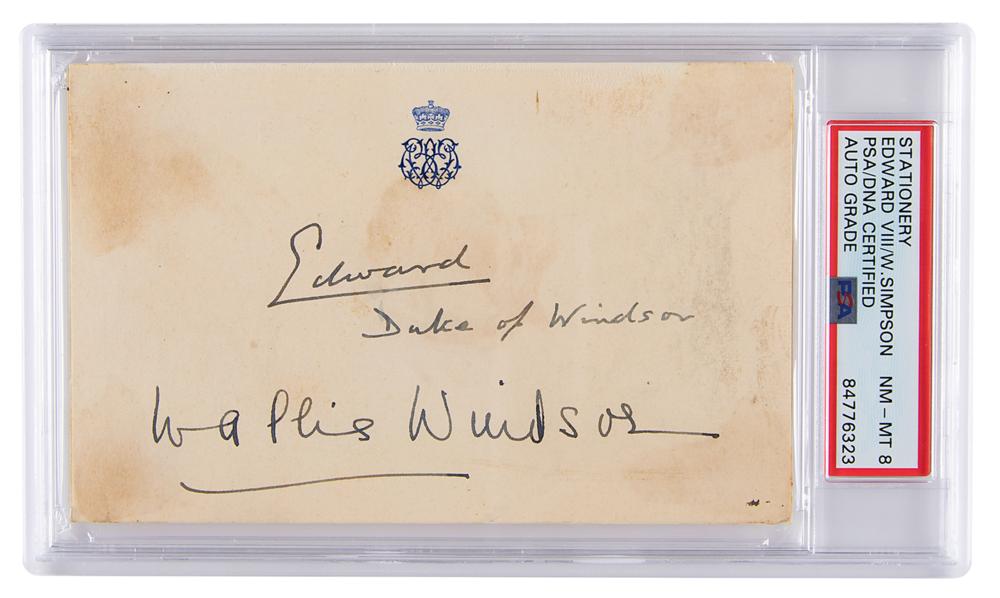 Edward
Duke of Windsor
Wallis Windsor
STATIONERY
EDWARD VIII/W.SIMPSON NM – MT 8
PSA/DNA CERTIFIED
AUTO GRADE 84776323
PSA